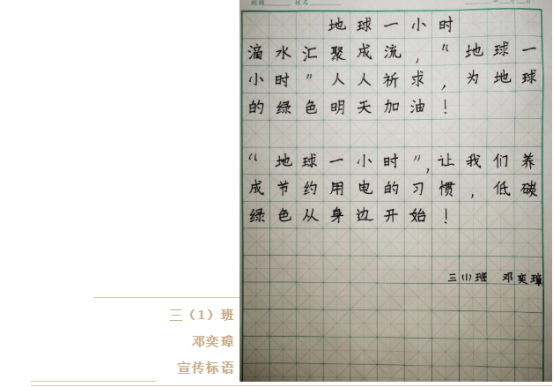 地球一小时
滴水汇聚成流，“地球一
小时”人人祈求，为地球
的绿色明天加油！
“地球一小时”，让我们养
成节约用电的习惯，低碳
绿色从身边开始！
三（1）班 邓奕璋
三（1）班
邓奕璋
宣传标语